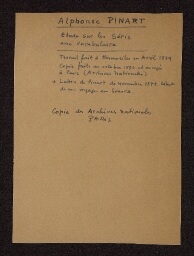 Alphonse PINART
Etude sur les Séris
avec vocabulaire
Travail fait à Hermosillo en Avril 1879
Copie faite en octobre 1950 et envoyée
à Paris (Archives Nationales)
Lettre de Pinart de novembre 1879
de son voyage en Sonora
Copie des Archives nationales
PARIS